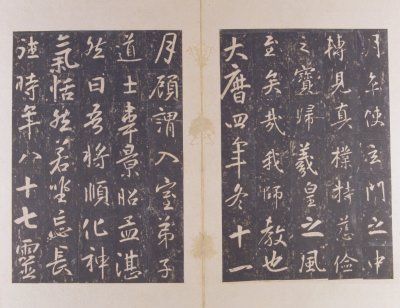 使玄門之中
見真樸持慈儉
之寶歸羲皇之風
至矣哉我師教也
大曆四年冬十一
月顧謂入室弟子
道士韋景昭孟湛
然曰吾將順化神
氣恬然若坐忘長
往時年八十七靈